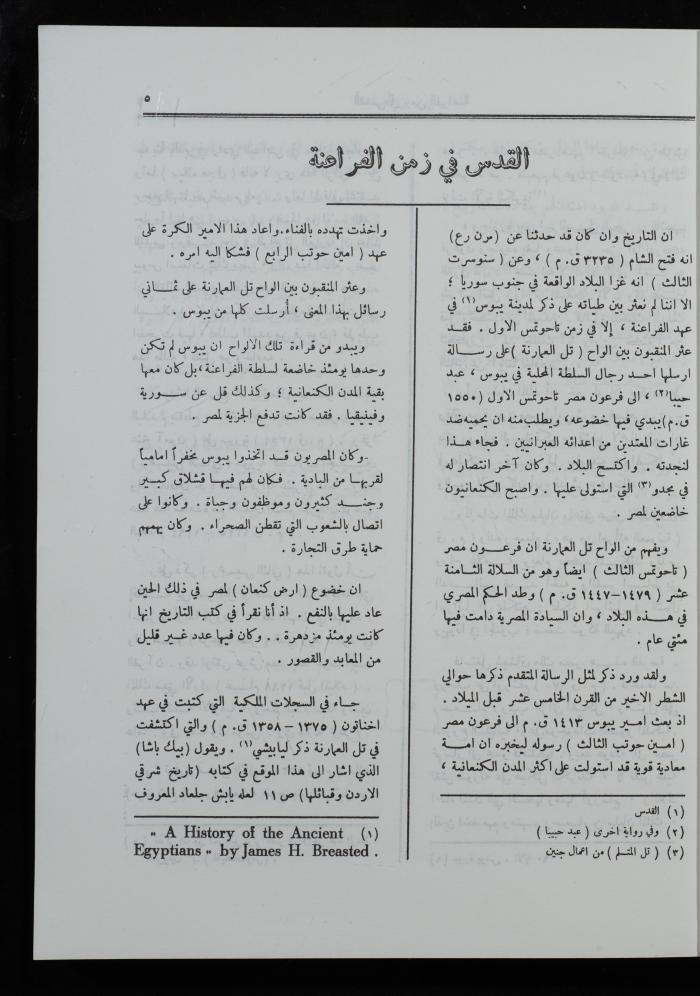 ٥
القدس في زمن الفراعنة
ان التاريخ وان كان قد حدثنا عن (مرن رع)
انه فتح الشام ( ٣٢٣٥ ق. م ) ، وعن ( سنوسرت
الثالث ) انه غزا البلاد الواقعة في جنوب سوريا ؛
الا اننا لم نعثر بين طياته على ذكر لمدينة يبوس(١) في
عهد الفراعنة ، إلا في زمن تاحوتمس الاول . فقـد
عثر المنقبون بين الواح ( تل العمارنة )على رسـالة
ارسلها احـد رجال السلطة المحلية في يبوس ، عبد
حيبا(٢) ، الى فرعون مصر تاحوتمس الاول (١٥٥٠
ق.م)يبدي فيها خضوعه، ويطلب منه ان يحميه ضد
غارات المعتدين من اعدائه العبرانيين . فجاء هـذا
لنجدته . واكتسح البلاد . وكان آخر انتصار له
في مجدو(٣) التي استولى عليها . واصبح الكنعانيون
خاضعين لمصر .
ويفهم من الواح تل العمارنة ان فرعـون مصر
( تاحوتمس الثالث ) ايضاً وهو من السلالة الثامنة
عشر ( ١٤٧٩-١٤٤٧ ق. م ) وطد الحكم المصري
في هـذه البلاد ، وان السيادة المصرية دامت فيها
مئتي عام .
ولقد ورد ذكر لمثل الرسالة المتقدم ذكرها حوالي
الشطر الاخير من القرن الخامس عشر قبل الميلاد .
اذ بعث امـير يبوس ١٤١٣ ق. م الى فرعون مصر
( امـين حوتب الثالث ) رسوله ليخبره ان امـة
معادية قوية قد استولت على اكثر المدن الكنعانية ،
(١) القدس
(٢) وفي رواية اخرى ( عبد حبيبا )
(٣) ( تل المتسلم ) من اعمال جنين
واخذت تهدده بالفناء.واعاد هذا الامير الكرة على
عهد ( امين حوتب الرابع ) فشكا اليه امره .
وعثر المنقبون بين الواح تل العمارنة على ثمـاني
رسائل بهذا المعنى ، أرسلت كلها من يبوس .
ويبدو من قراءة تلك الالواح ان يبوس لم تكن
وحدها يومئذ خاضعة لسلطة الفراعنة،بل كان معها
بقية المدن الكنعانية ؛ وكذلك قل عن سـورية
وفينيقيا . فقد كانت تدفع الجزية لمصر .
-وكان المصريون قـد اتخذوا يبوس مخفراً امامياً
لقربهـا من البادية . فكان لهم فيهـا قشلاق كبـير
وجنـد كثيرون وموظفون وجباة . وكانوا على
اتصال بالشعوب التي تقطن الصحراء . وكان يهمهم
حماية طرق التجارة .
ان خضوع ( ارض كنعان ) لمصر في ذلك الحين
عاد عليها بالنفع . اذ أنا نقرأ في كتب التاريخ انها
كانت يومئذ مزدهرة . . وكان فيها عدد غـير قليل
من المعابد والقصور .
جـاء في السجلات الملكية التي كتبت في عهد
اخناتون ( ١٣٧٥ – ١٣٥٨ ق. م ) والتي اكتشفت
في تل العمارنة ذكر ليابيشي(١) . ويقول (بيك باشا)
الذي اشار الى هذا الموقع في كتابه (تاريخ شرقي
الاردن وقبائلها) ص ١١ لعله يابش جلعاد المعروف
(١) " A History of the Ancient
Egyptians " by James H. Breasted .